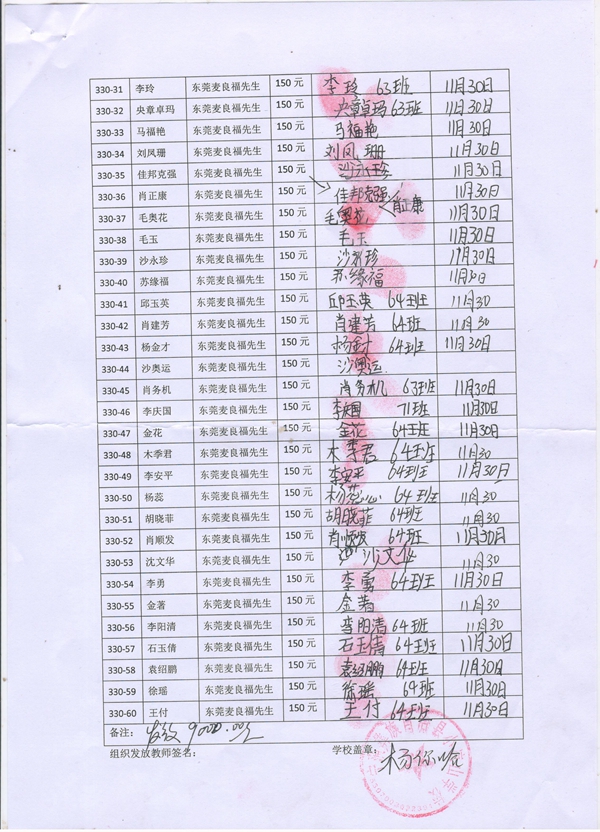 330-31 李玲 东莞麦良福先生 150 元 李玲 63班 11月30日
330-32 央章卓玛 东莞麦良福先生 150 元 央章卓玛 63班 11月30日
330-33 马福艳 东莞麦良福先生 150 元 马福艳 11月30日
330-34 刘凤珊 东莞麦良福先生 150 元 刘凤珊 11月30日
330-35 佳邦克强 东莞麦良福先生 150 元 沙永珍 11月30日
330-36 肖正康 东莞麦良福先生 150 元 佳邦克强 肖正康 11月30日
330-37 毛奥花 东莞麦良福先生 150 元 毛奥花 11月30日
330-38 毛玉 东莞麦良福先生 150 元 毛玉 11月30日
330-39 沙永珍 东莞麦良福先生 150 元 沙永珍 11月30日
330-40 苏缘福 东莞麦良福先生 150 元 苏缘福 11月30日
330-41 邱玉英 东莞麦良福先生 150 元 邱玉英 64班 11月30
330-42 肖建芳 东莞麦良福先生 150 元 肖建芳 64班 11月30
330-43 杨金才 东莞麦良福先生 150 元 杨金才 64班 11月30日
330-44 沙奥运 东莞麦良福先生 150 元 沙澳运
330-45 肖务机 东莞麦良福先生 150 元 肖务机 63班 11月30日
330-46 李庆国 东莞麦良福先生 150 元 李庆国 71班 11月30日
330-47 金花 东莞麦良福先生 150 元 金花 64班 11月30日
330-48 木季君 东莞麦良福先生 150 元 木季君 64班 11月30
330-49 李安平 东莞麦良福先生 150 元 李安平 64班 11月30日
330-50 杨蕊 东莞麦良福先生 150 元 杨蕊 64班 11月30
330-51 胡晓菲 东莞麦良福先生 150 元 胡晓菲 64班 11月30
330-52 肖顺发 东莞麦良福先生 150 元 肖顺发 64班 11月30日
330-53 沈文华 东莞麦良福先生 150 元 沙文华 11月30
330-54 李勇 东莞麦良福先生 150 元 李勇 64班 11月30日
330-55 金著 东莞麦良福先生 150 元 金著 11月30
330-56 李阳清 东莞麦良福先生 150 元 李阳清 64班 11月30
330-57 石玉倩 东莞麦良福先生 150 元 石玉倩 64班 11月30日
330-58 袁绍鹏 东莞麦良福先生 150 元 袁绍鹏 64班 11月30日
330-59 徐瑶 东莞麦良福先生 150 元 徐瑶 64班 11月30日
330-60 王付 东莞麦良福先生 150 元 王付 64班 11月30日
备注: 发放 9000.00元
组织发放教师签名: 学校盖章: 杨你哈